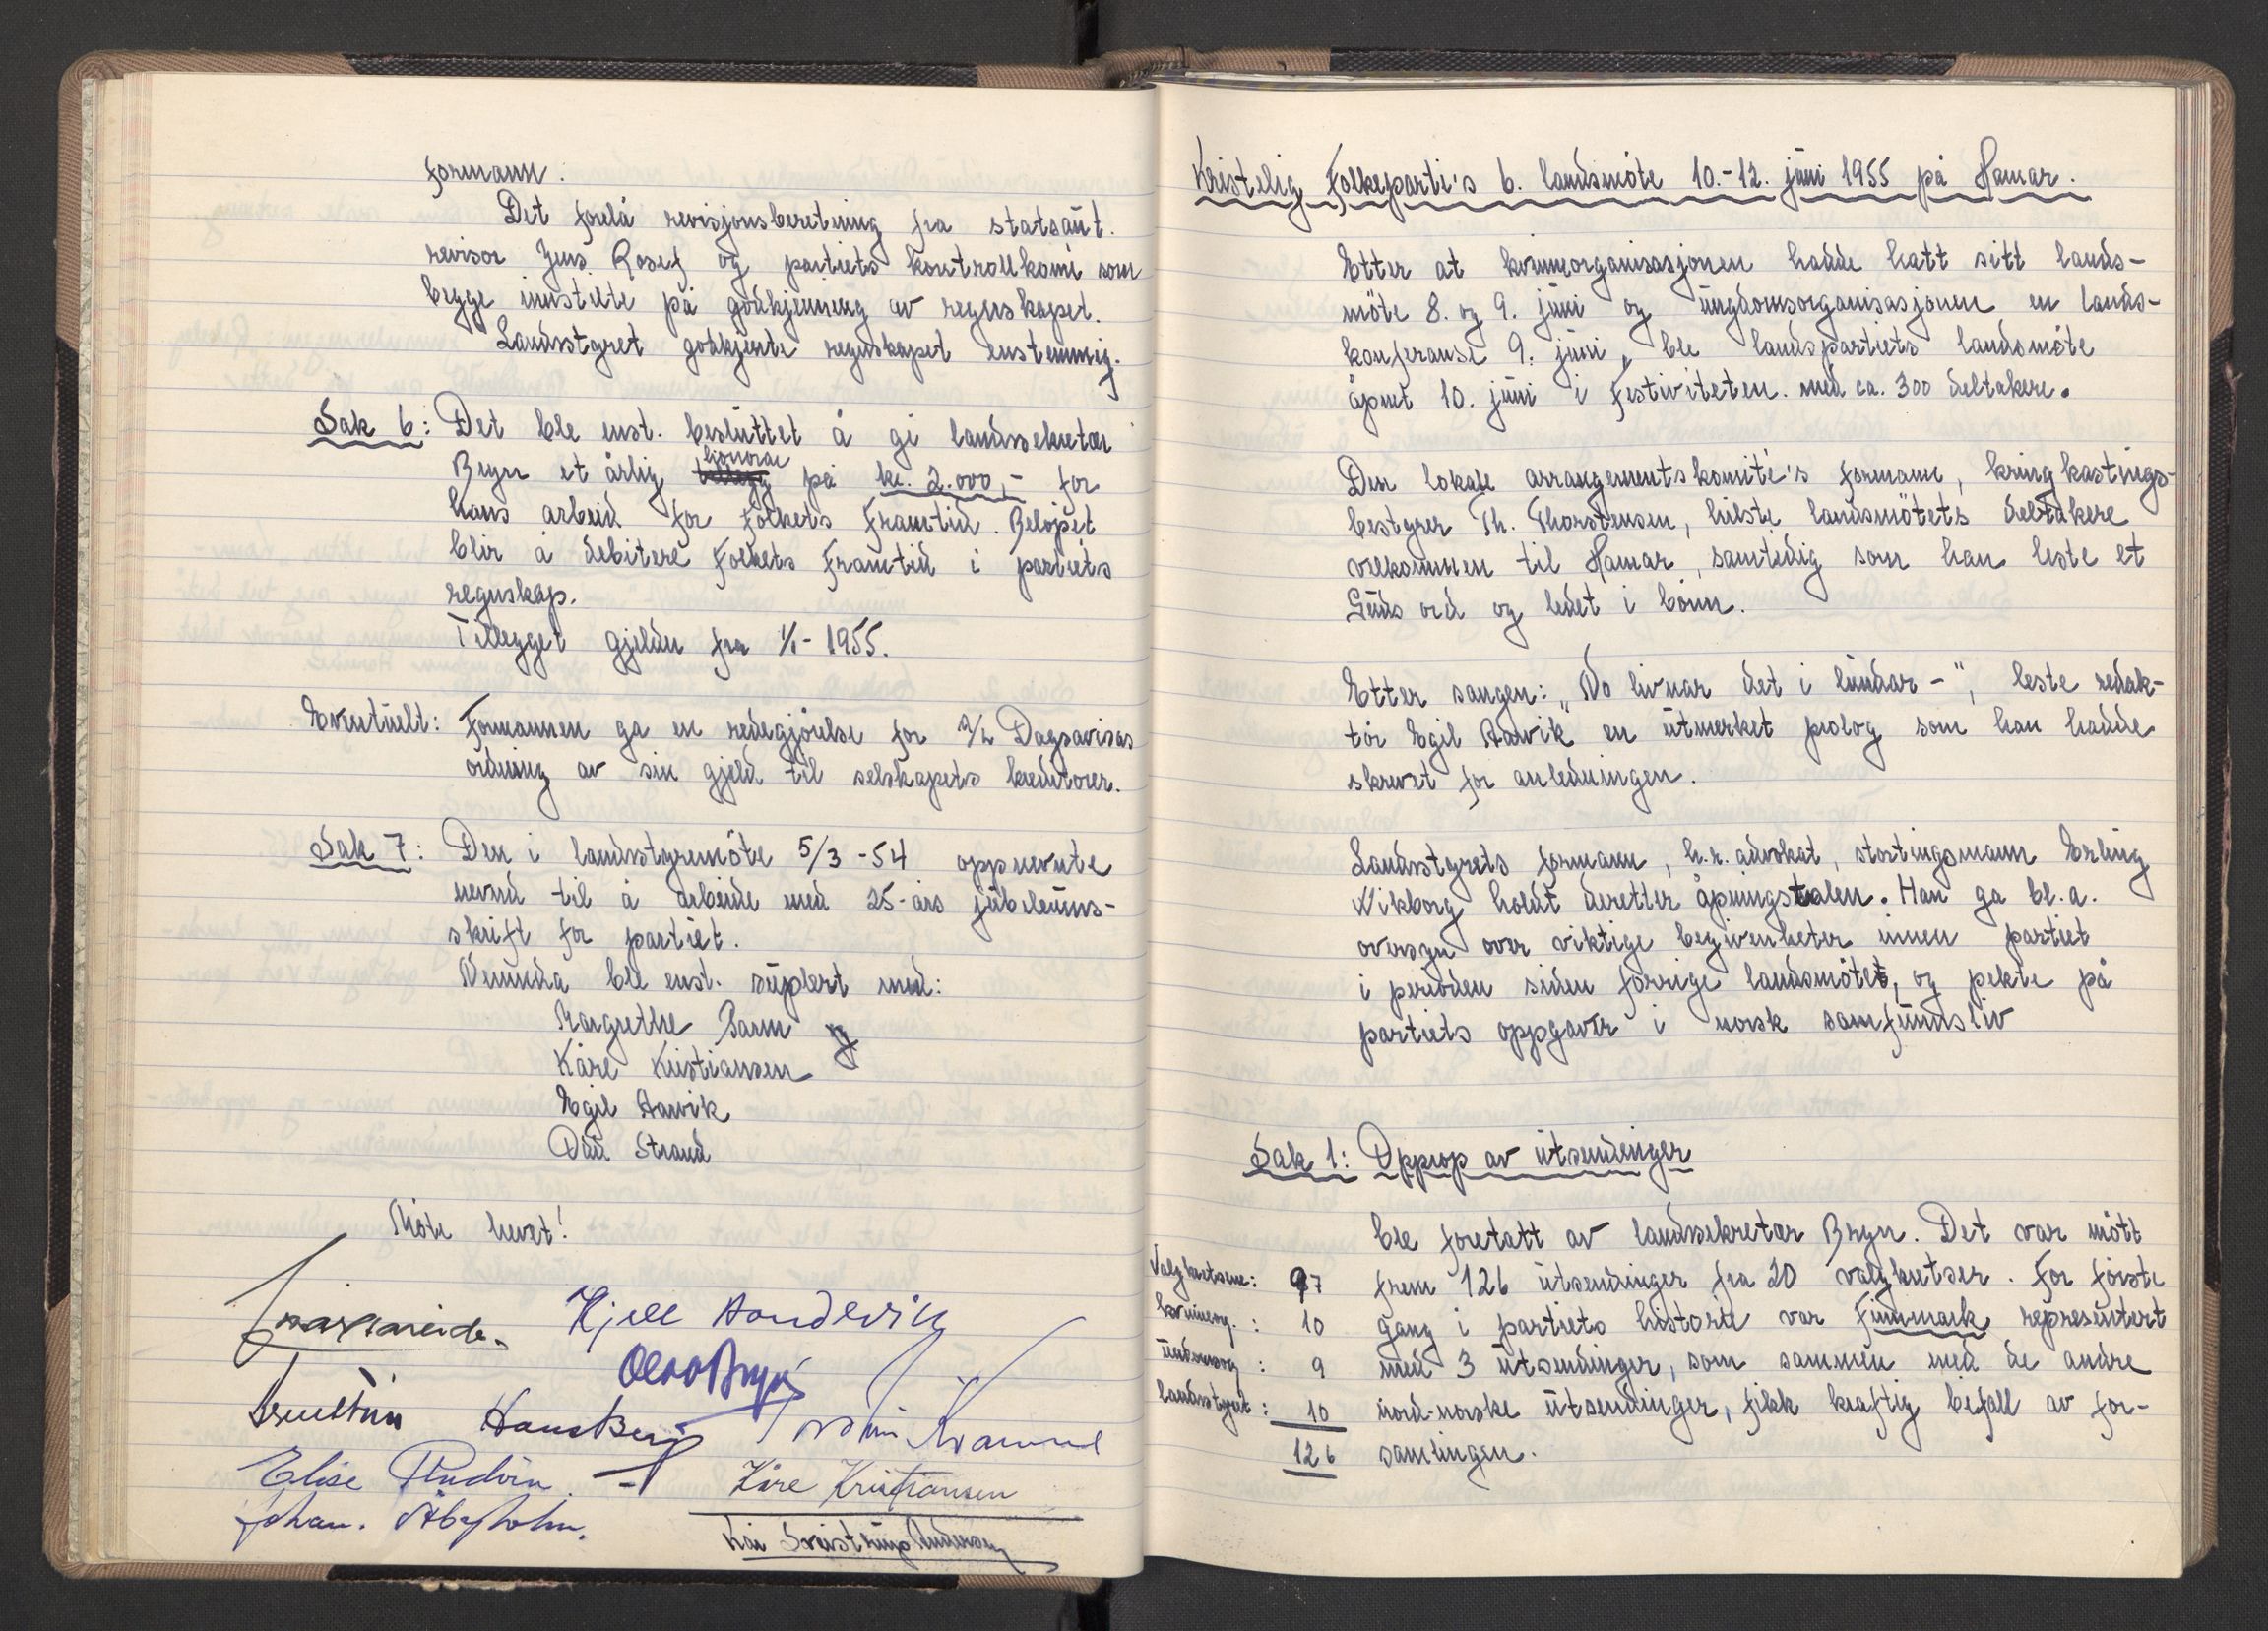 formann.
Det forelå revisjonsberetning fra statsaut.
revisor Jens Rosef og partiets kontrollkomi som
begge innstilte på godkjenning av regnskapet.
Landsstyret godkjente regnskapet enstemmig.
Sak 6: Det ble enst. besluttet å gi landssekretær
Bryn et årlig honorar på kr. 2.000,- for
hans arbeid for Folkets Framtid. Beløpet
blir å debitere Folkets Framtid i partiets
regnskap.
Tillegget gjelder fra 1/1-1955.
Eventuelt: Formannen ga en redegjørelse for A/L Dagsavisas
ordning av sin gjeld til selskapets kreditorer.
Sak 7: Den i landsstyremöte 5/3-54 oppnevnte
nevnd til å arbeide med 25-års jubileums-
skrift for partiet.
Nemnda ble enst. suplert med:
Margrethe Parm og
Kåre Kristiansen
Egil Aarvik
Odd Strand
Möte hevet!
Kjell Bondevik
Olav Bryn
Hans Berg
Kvamme
Elise
Kåre Kristiansen
Johan.
Kai Sveistrup Andersen
Kristelig Folkeparti's 6. landsmöte 10.-12. juni 1955 på Hamar.
Etter at kvinneorganisasjonen hadde hatt sitt lands-
möte 8. og 9. juni og ungdomsorganisasjonen en lands-
konferanse 9. juni, ble landspartiets landsmöte
åpnet 10. juni i Festiviteten. med ca. 300 deltakere.
Den lokale arrangementskomité's formann, kringkastings-
bestyrer Th. Thorstensen, hilste landsmötets deltakere
velkommen til Hamar, samtidig som han leste et
Guds ord og ledet i bönn.
Etter sangen: „No livnar det i lundar -", leste redak-
tör Egil Aarvik en utmerket prolog som han hadde
skrevet for anledningen.
Landsstyrets formann, h.r. advokat, stortingsmann Erling
Wikborg holdt deretter åpningstalen. Han ga bl.a.
oversyn over viktige begivenheter innen partiet
i perioden siden forrige landsmötet, og pekte på
partiets oppgaver i norsk samfunnsliv
Sak 1: Opprop av utsendinger
ble foretatt av landssekretær Bryn. Det var mött
Valgkretsene: 97 frem 126 utsendinger fra 20 valgkretser. For förste
kvinneorg. : 10 gang i partiets historie var Finnmark representert
undomsorg : 9 med 3 utsendinger, som sammen med de andre
landsstyret : 10 nord-norske utsendinger, fikk kraftig bifall av for-
126 samlingen.